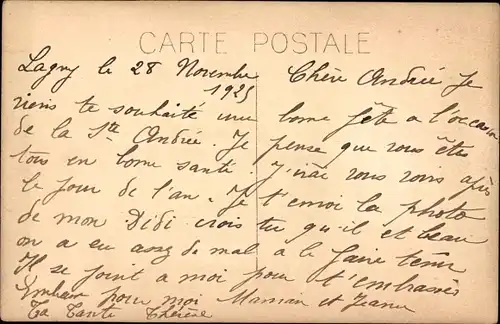 CARTE POSTALE
Lagny le 28 Novembre Chère Andrée Je
1925
viens te souhaité une bonne fête a l'occasion
de la Ste Andrée. Je pense que vous êtes
tous en bonne santé. J'irai vous voir après
le jour de l'an. Je t'envoi la photo
de mon Didi crois tu qu'il et beau
on a eu assez de mal a le faire tenir
Il se joint a moi pour t'embrassés
Embrasse pour moi Maman et Jeanne
Ta Tante Thérèse